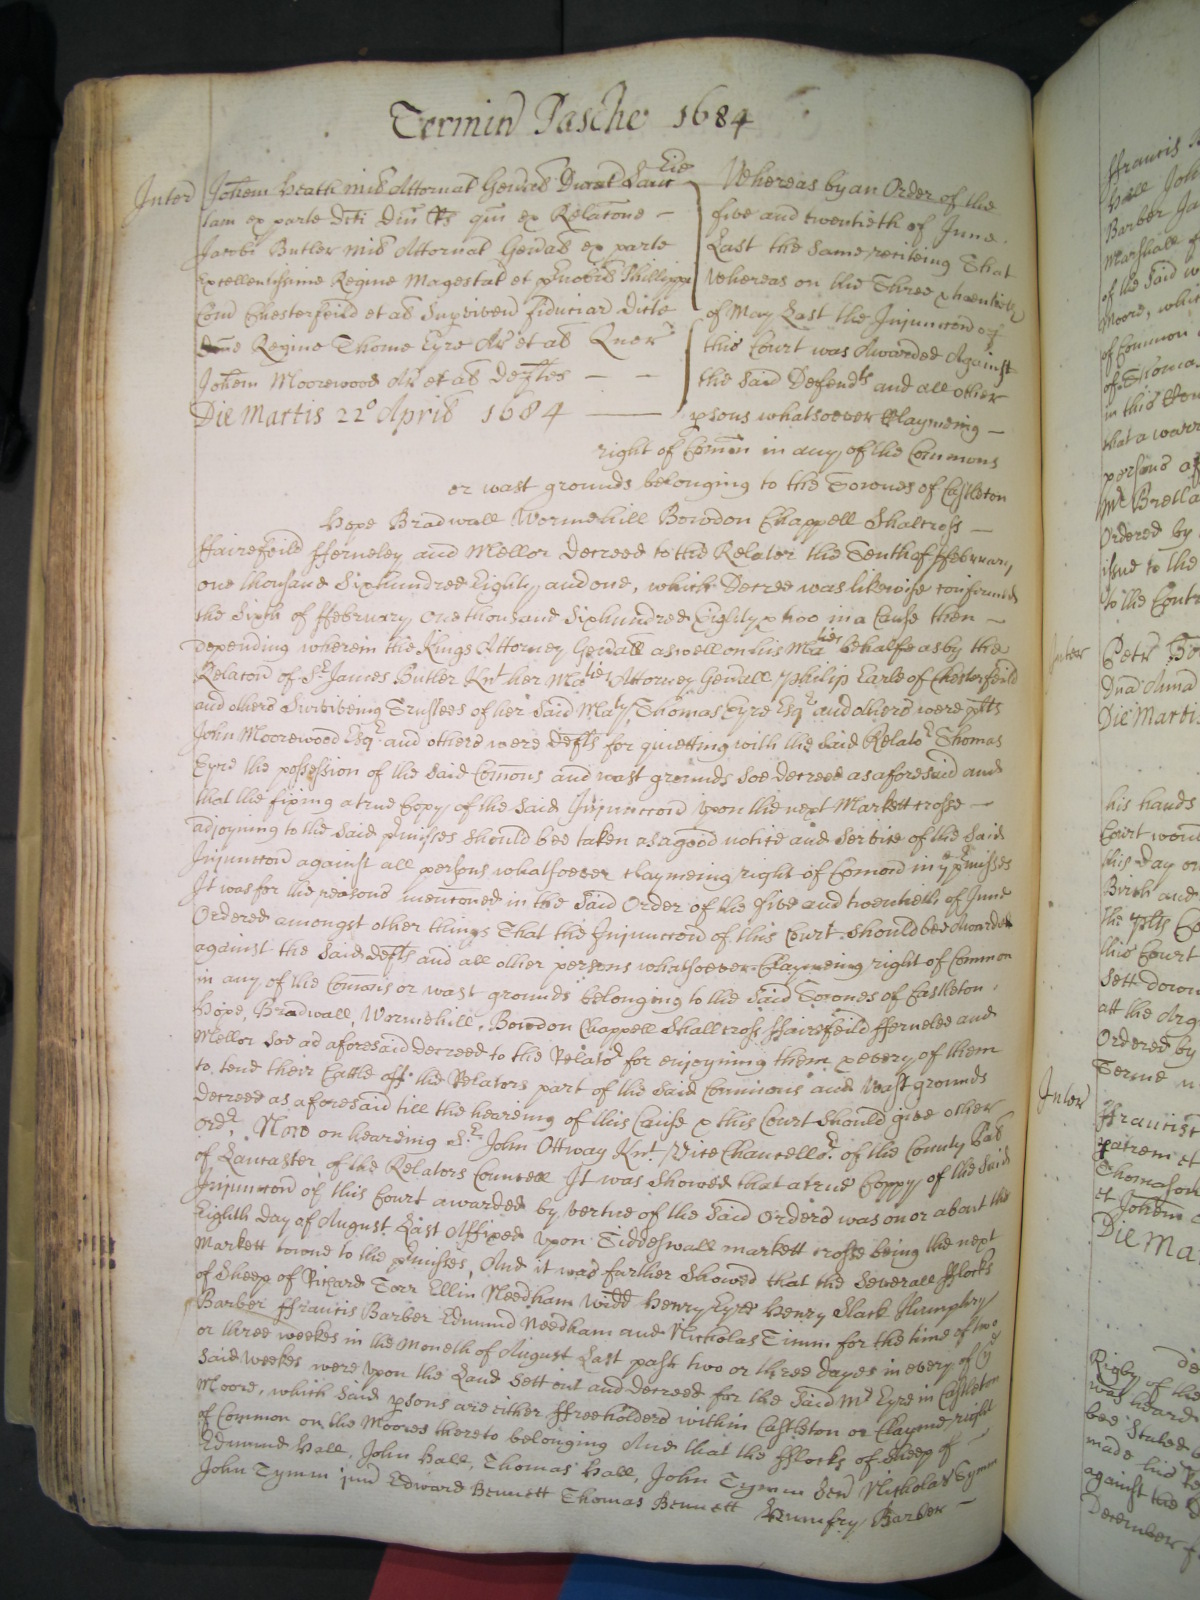 Termin Pasche 1684
Inter Johem Heath Mil Attornat Genal Ducat Lanc
tam ex parte Dcti Dni Rs qm ex Relacone —
Jacobi Butler Mil Attornat Genal ex parte
Excellentissime Regine Magestat et Phillippi
Com Chesterfeild et al Superviven fiduciar Dicte
Dne Regine Thome Eyre Ar et al Quer
Johem Moorewood Ar et al Defts — —
Die Martis 22º April 1684 —
Whereas by an Order of the
five and twentieth of June
Last the same reciteing That
Whereas on the Three & twentieth
of May Last the Injunccon of
this Court was Awarded Against
the said Defendts and all other
psons whatsoever Claymeing —
right of Comon in any of the Commons
or wast grounds belonging to the Townes of Castleton
Hope Bradwall Wormehill Bowdon Chappell Shalcross —
Fairefeild fferneley and Mellor Decreed to the Relator the Tenth of ffebruary
one thousand Sixhundred Eighty and one, which Decree was likewise confirmed
the Sixth of ffebruary one thousand Sixhundred Eighty & two in a Cause then —
depending wherein the Kings Attorney Genall aswell on his Maties behalfe as by the
Relacon of Sr James Butler Knt her Maties Attorney Genall Philip Earle of Chesterfeild
and others Surviveing Trustees of her said Maty, Thomas Eyre Esqr and others were plts
John Moorewood Esqr and others were Defts for quietting with the said Relator Thomas
Eyre the possession of the said Comons and wast grounds Soe decreed as aforesaid and
that the fixing a true Copy of the said Injunccon upon the next Markett crosse —
adjoyning to the said pmisses should bee taken as a good notice and Service of the said
Injunccon against all persons whatsoever claymeing right of Comon in ye pmisses
It was for the reasons menconed in the said Order of the five and twentieth of June
Ordered amongst other things That the Injunccon of this Court should bee Awarded
against the said Defts and all other persons whatsoever Claymeing right of Common
in any of the Comons or wast grounds belonging to the said Townes of Castleton,
Hope, Bradwall, Wormehill, Bowdon Chappell Shallcross ffairefeild ffernelee and
Mellor Soe as aforesaid Decreed to the Relator for enjoyning them & every of them
to tend their Cattle off the Relators part of the said Commons and wast grounds
Decreed as aforesaid till the heareing of this Cause & this Court should give other
Ordr. Now on hearing Sr John Ottway Knt Vice Chancellor of the County Pal
of Lancaster of the Relators Councell It was showed that a true Coppy of the said
Injunccon of this Court awarded by vertue of the said Orders was on or about the
Eighth Day of August Last Affixed upon Tiddeswall markett crosse being the next
Markett towne to the pmisses, And it was further showed that the severall fflocks
of Sheep of Richard Torr Ellin Needham widd Henry Eyre Henry Slack Humphry
Barber ffrancis Barber Edmund Needham and Nicholas Timm for the time of two
or three weekes in the Moneth of August Last past two or three Dayes in every of ye
said weekes were upon the Land sett out and decreed for the said Mr Eyre in Castleton
Moore, which said psons are either ffreeholders within Castleton or Clayme right
of Common on the Moores thereto belonging And that the fflocks of Sheep of —
Edmund Hall, John Hall, Thomas Hall, John Tymm Sen Nicholas Tymm
John Tymm jun Edward Bennett Thomas Bennett Humfry Barber —